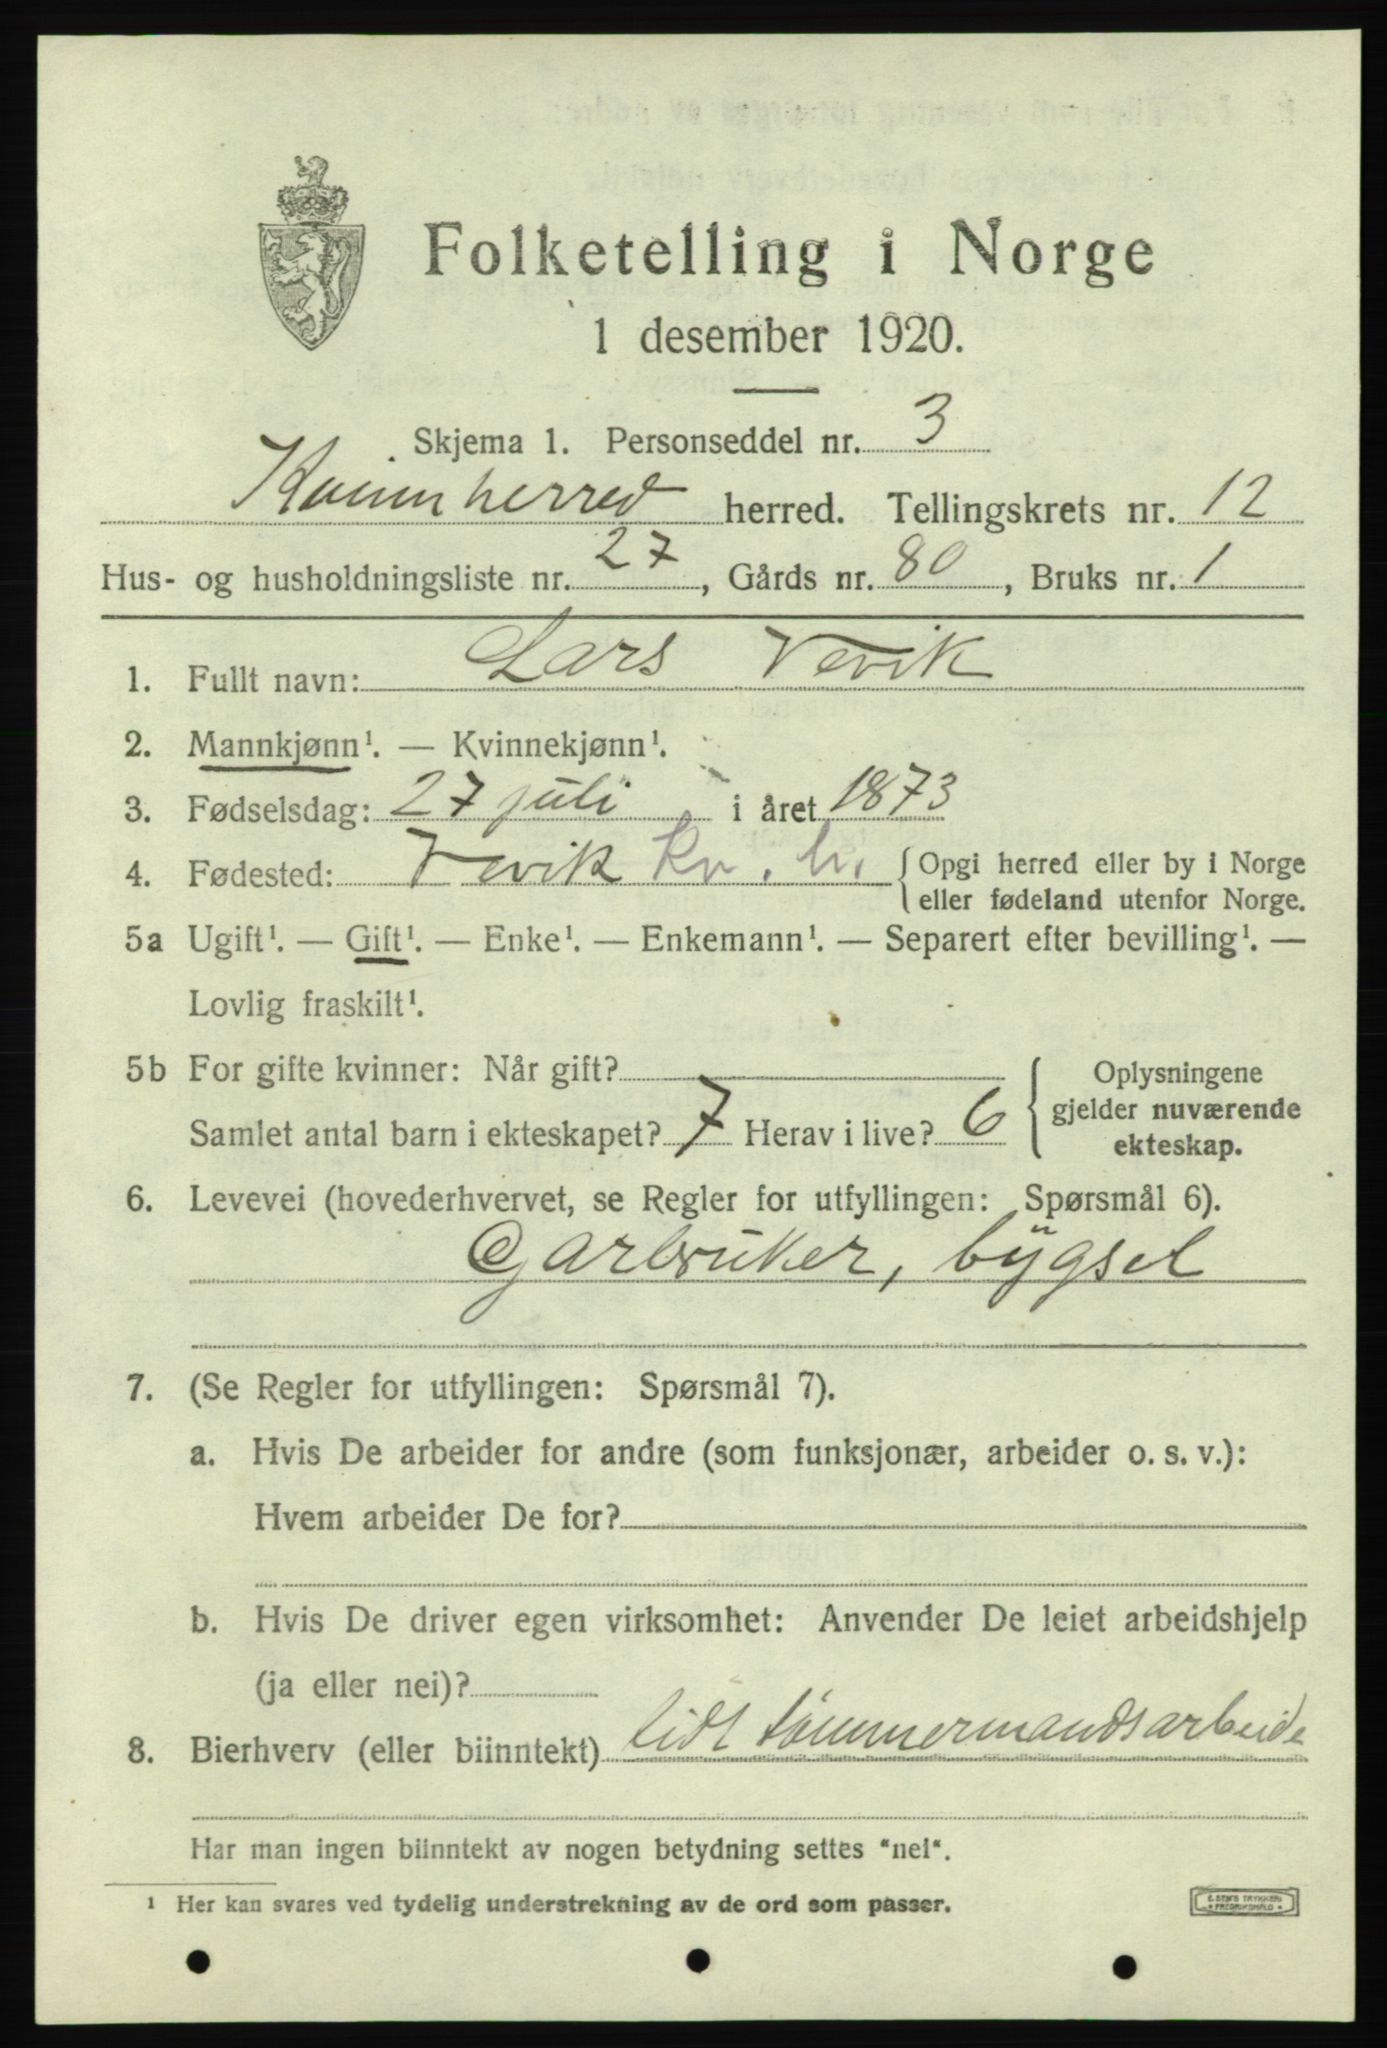 Folketelling i Norge
1 desember 1920.
Skjema 1. Personseddel nr. 3
Kvinnherred herred. Tellingskrets nr. 12
Hus- og husholdningsliste nr. 27, Gårds nr. 80, Bruks nr. 1
1. Fullt navn: Lars Vevik
2. Mannkjønn¹. — Kvinnekjønn¹.
3. Fødselsdag: 27 juli i året 1873
4. Fødested: Vevik Kv. h. { Opgi herred eller by i Norge
eller fødeland utenfor Norge.
5a Ugift¹. — Gift¹. — Enke¹. — Enkemann¹. — Separert efter bevilling¹. —
Lovlig fraskilt¹.
5b For gifte kvinner: Når gift?
Samlet antal barn i ekteskapet? 7 Herav i live? 6
Oplysningene
gjelder nuværende
ekteskap.
6. Levevei (hovederhvervet, se Regler for utfyllingen: Spørsmål 6).
Garbruker, bygsel
7. (Se Regler for utfyllingen: Spørsmål 7).
a. Hvis De arbeider for andre (som funksjonær, arbeider o. s. v.):
Hvem arbeider De for?
b. Hvis De driver egen virksomhet: Anvender De leiet arbeidshjelp
(ja eller nei)?
8. Bierhverv (eller biinntekt) lidt tømmermandsarbeide
Har man ingen biinntekt av nogen betydning settes "nei".
1 Her kan svares ved tydelig understrekning av de ord som passer.